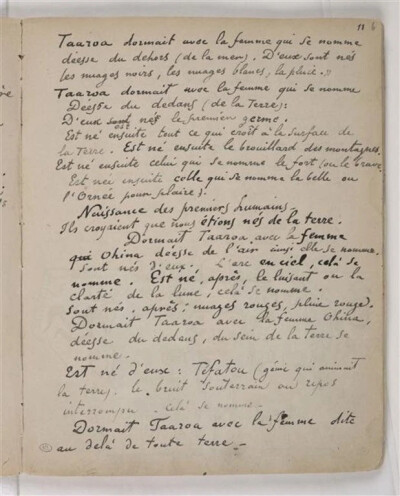 11
Taaroa dormait avec la femme qui se nomme
déesse du dehors (de la mer). D'eux sont nés
les nuages noirs, les nuages blancs, la pluie.»
Taaroa dormait avec la femme qui se nomme
Déesse du dedans (de la Terre):
D'eux est né le premier germe.
Est né ensuite tout ce qui croît à la surface de
la Terre. Est né ensuite le brouillard des montagnes.
Est né ensuite celui qui se nomme le fort (ou le brave
Est née ensuite celle qui se nomme la belle ou
l'Ornée pour plaire):
Naissance des premiers humains.
Ils croyaient que nous étions nés de la terre.
Dormait Taaroa avec la femme
qui Ohina déesse de l'air ainsi elle se nomme.
Sont nés d'eux. L'arc en ciel, celà se
nomme. Est né, après, le luisant ou la
clarté de la lune, celà se nomme.
Sont nés, après; nuages rouges, pluie rouge.
Dormait Taaroa avec la femme Ohina,
déesse du dedans, du sein de la terre se
nomme.
Est né d'eux: Téfatou (génie qui animait
la terre). le bruit souterrain ou repos
interrompu. Celà se nomme.
Dormait Taaroa avec la femme dite
au delà de toute terre_